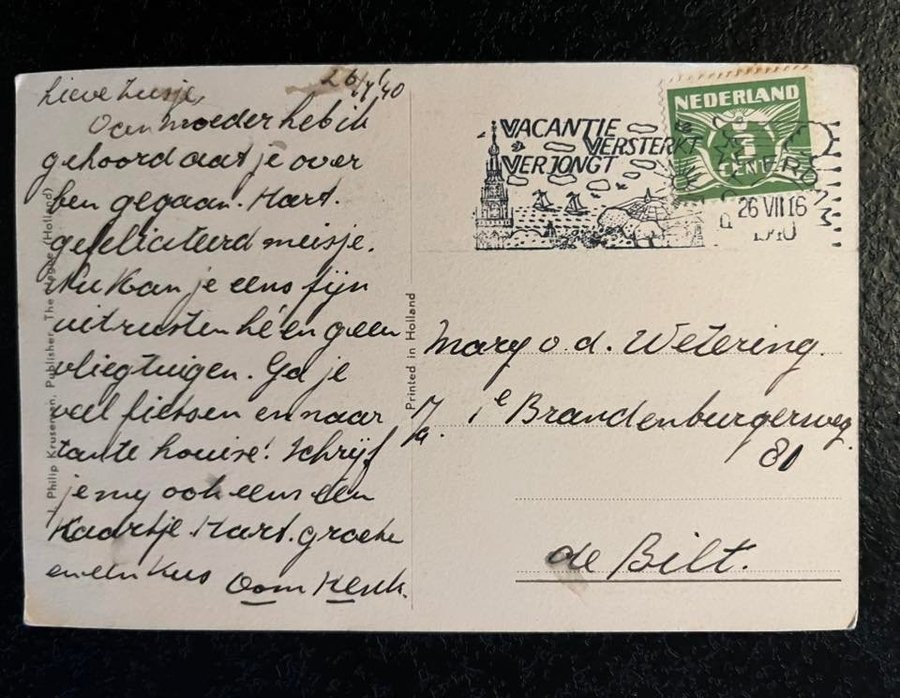 26/7/'40
Lieve Zusje,
Van moeder heb ik
gehoord dat je over
ben gegaan. Hart.
gefeliciteerd meisje.
Nu kan je eens fijn
uitrusten hé en geen
vliegtuigen. Ga je
veel fietsen en naar
tante Louise! Schrijf
je my ook eens een
Kaartje. Hart. groeten
en een Kus Oom Henk.
J. Philip Kruseman, Publisher, The Hague (Holland)
Printed in Holland
VACANTIE
VERSTERKT
VERJONGT
NEDERLAND
CENT
26 VII 16
1940
Mary v. d. Wetering.
p/a. 1e Brandenburgerweg
81
de Bilt.